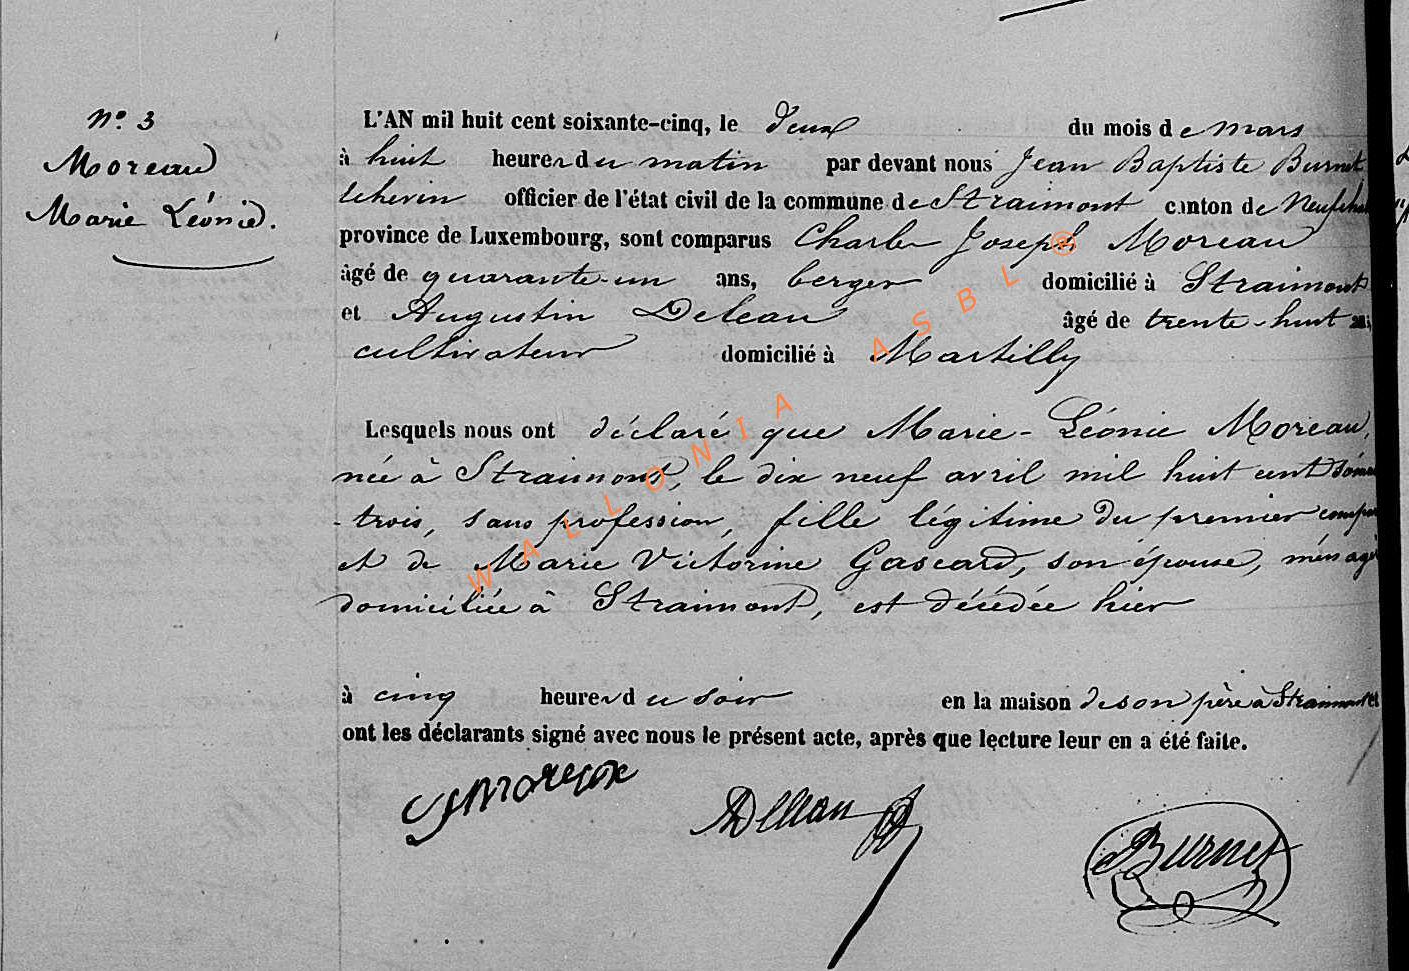 N.o 3
Moreau
Marie Léonie.
L'AN mil huit cent soixante-cinq, le deux du mois de mars
à huit heures du matin par devant nous Jean Baptiste Burnet
échevin officier de l'état civil de la commune de Straimont canton de Neufchat
province de Luxembourg, sont comparus Charles Joseph Moreau
âgé de quarante-un ans, berger domicilié à Straimont
et Augustin Deleau âgé de trente-huit ans
cultivateur domicilié à Martilly
Lesquels nous ont déclaré que Marie-Léonie Moreau,
née à Straimont, le dix neuf avril mil huit cent
-trois, sans profession, fille légitime du premier compa
et de Marie Victorine Gascard, son épouse, ménag
domiciliée à Straimont, est décédée hier
à cinq heures du soir en la maison de son père à Straimont et
ont les déclarants signé avec nous le présent acte, après que lecture leur en a été faite.
CJMoreau
ADeleau
Burnet
WALLONIA ASBL @